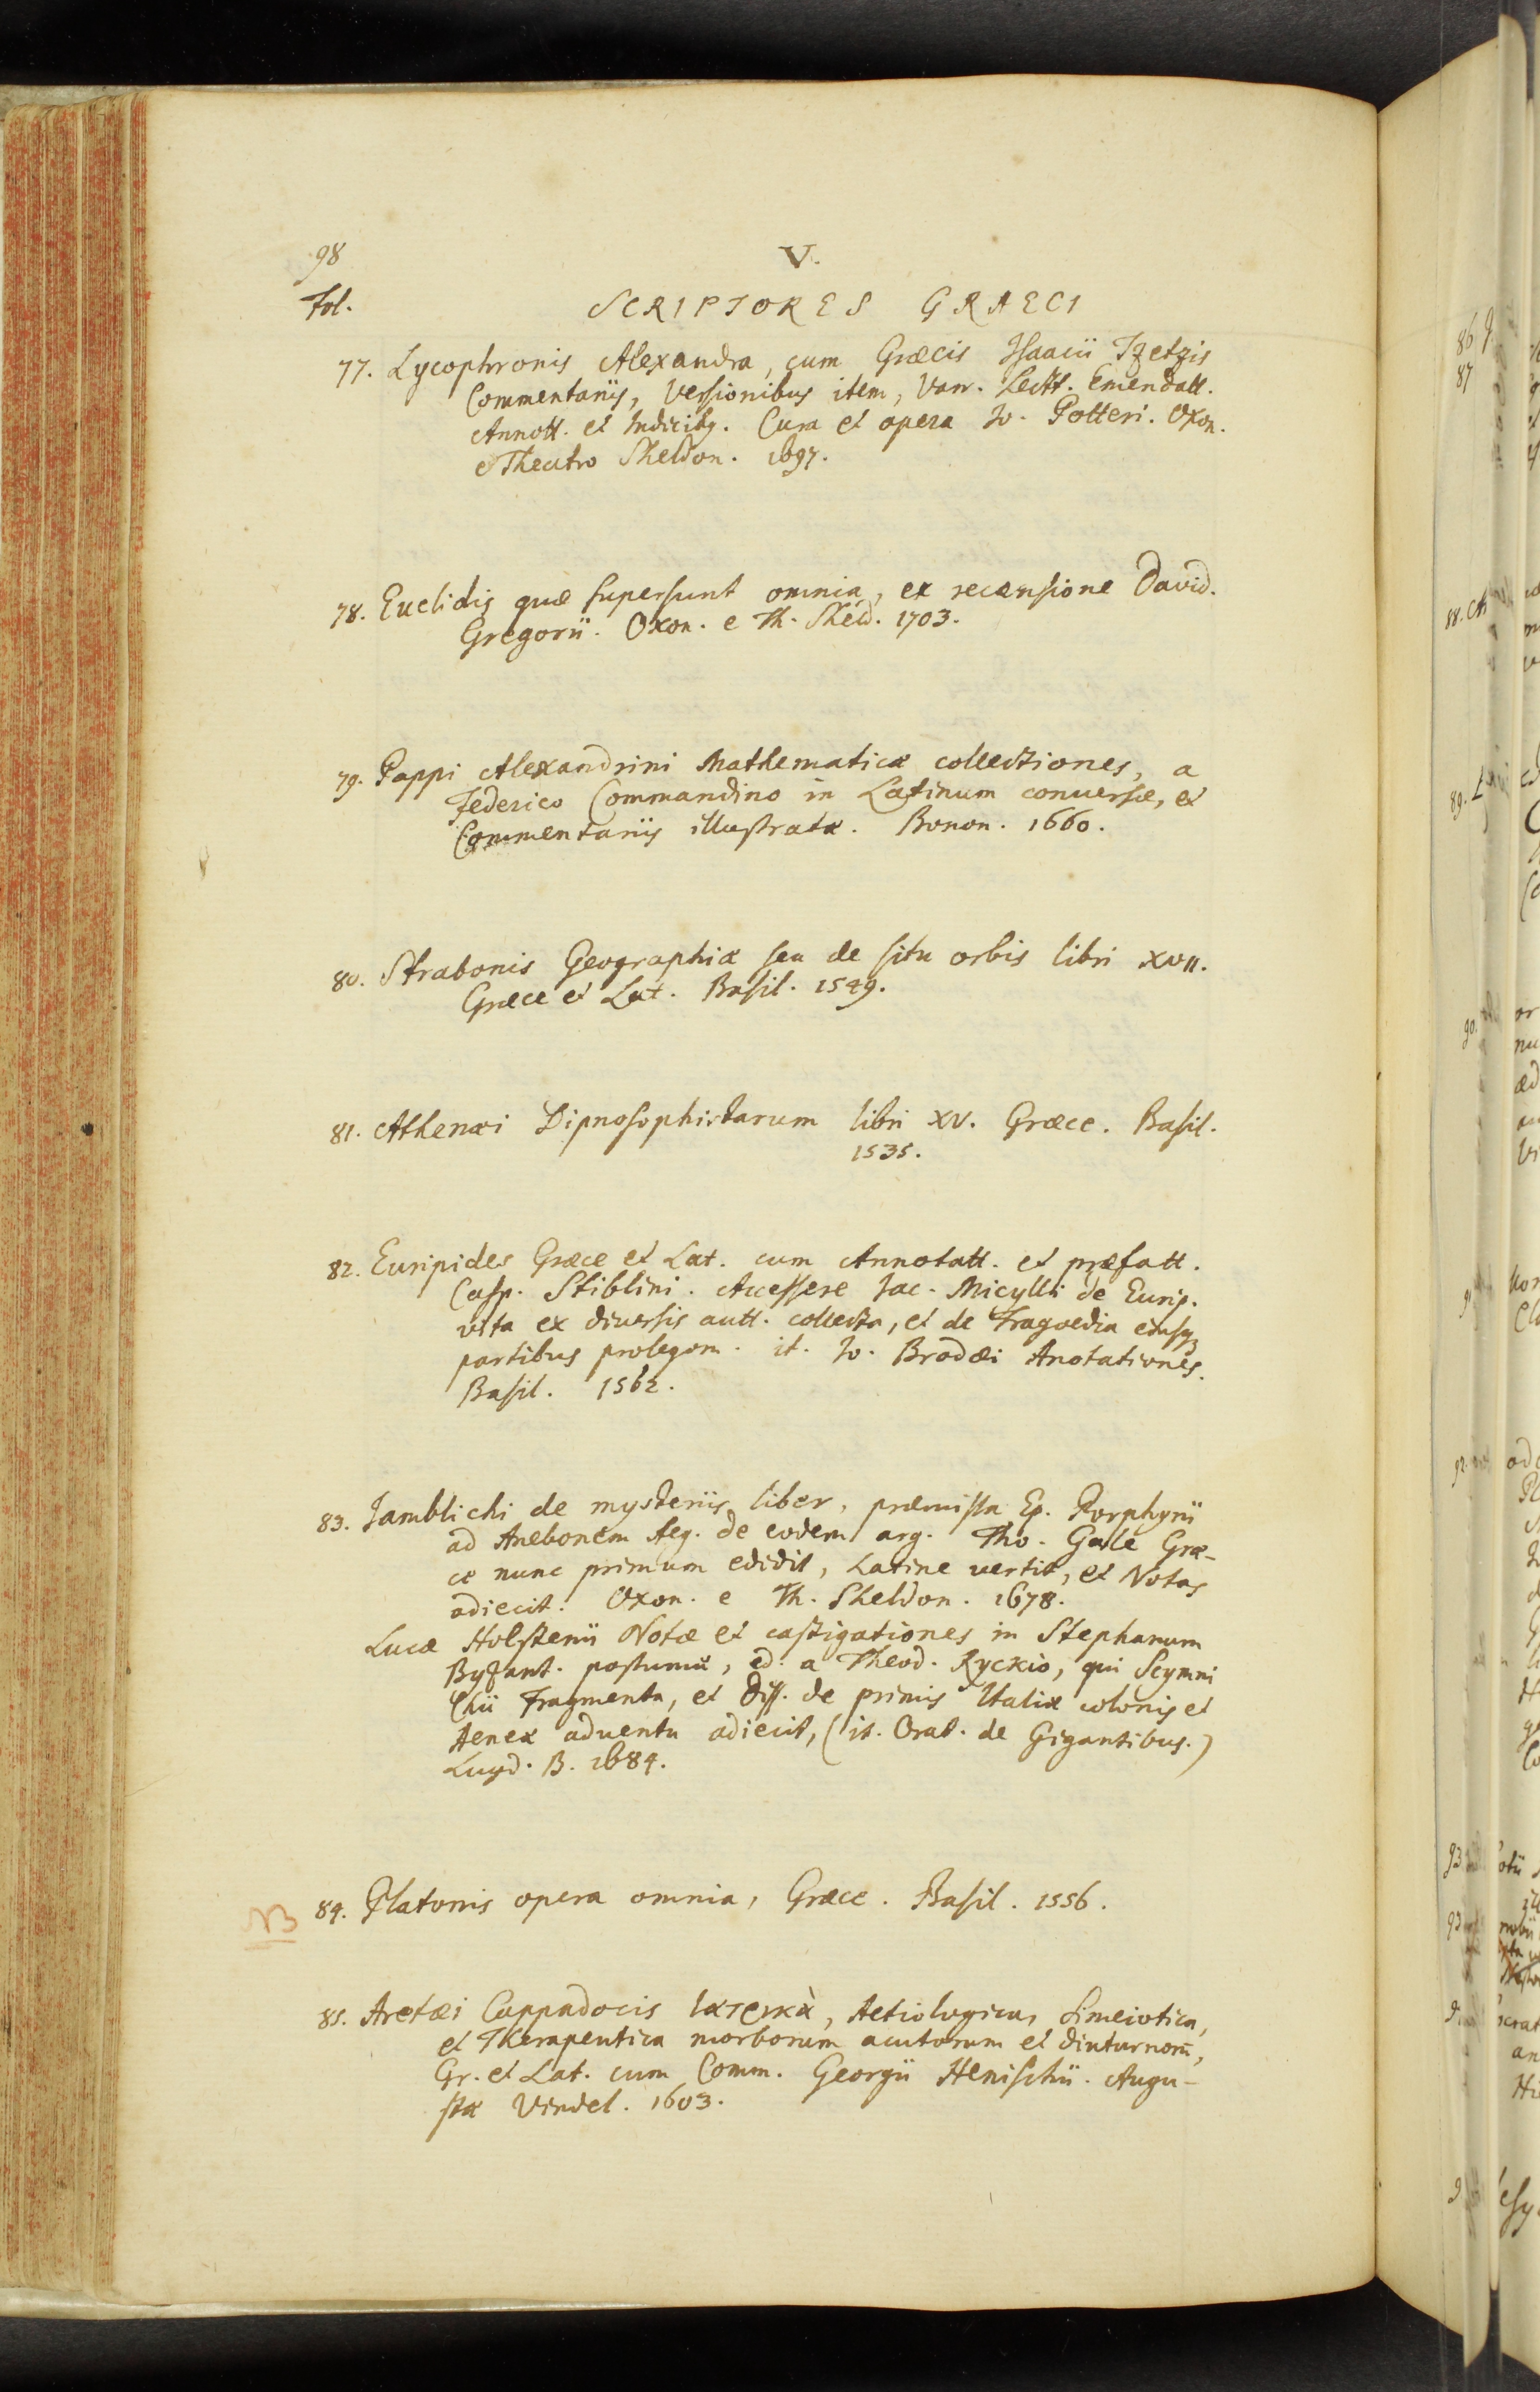 98
V.
Fol.
SCRIPTORES GRAECI
77. Lycophronis Alexandra, cum Græcis Isaacii Tzetzis
Commentariis, Versionibus item, Varr. Lectt. Emendatt.
Annott. et Indicibq. Cura et opera Jo. Potteri. Oxon.
e Theatro Sheldon. 1697.
78. Euclidis quæ supersunt omnia, ex recensione David.
Gregorii. Oxon. e Th. Sheld. 1703.
79. Pappi Alexandrini Mathematicæ collectiones, a
Federico Commandino in Latinum conuersæ, et
Commentariis illustratæ. Bonon. 1660.
80. Strabonis Geographiæ seu de situ orbis libri XVII.
Græce et Lat. Basil. 1549.
81. Athenæi Dipnosophistarum libri XV. Græce. Basil.
1535.
82. Euripides Græce et Lat. cum Annotatt. et præfatt.
Casp. Stiblini. Accessere Jac. Micylli de Eurip.
vita ex diuersis autt. collecta, et de Tragoedia eiusq;
partibus prolegom. it. Jo. Brodæi Anotationes.
Basil. 1562.
83. Jamblichi de mysteriis liber, præmissa Ep. Porphyrii
ad Anebonem Aeg. de eodem arg. Tho. Gale Græ-
ce nunc primum edidit, Latine vertit, et Notas
adiecit. Oxon. e Th. Sheldon. 1678.
Lucæ Holstenii Notæ et castigationes in Stephanum
Byzant. postumæ, ed. a Theod. Ryckio, qui Scymni
Chii Fragmenta, et Diss. de primis Italiæ colonis et
Aeneæ aduentu adiecit, (it. Orat. de Gigantibus.)
Lugd. B. 1684.
NB 84. Platonis opera omnia, Græce. Basil. 1556.
85. Aretæi Cappadocis ἰατρικὰ, Aetiologica, Simeiotica,
et Therapeutica morborum acutorum et diuturnorū,
Gr. et Lat. cum Comm. Georgii Henischii. Augu-
stæ Vindel. 1603.
86
87
88.
89.
90.